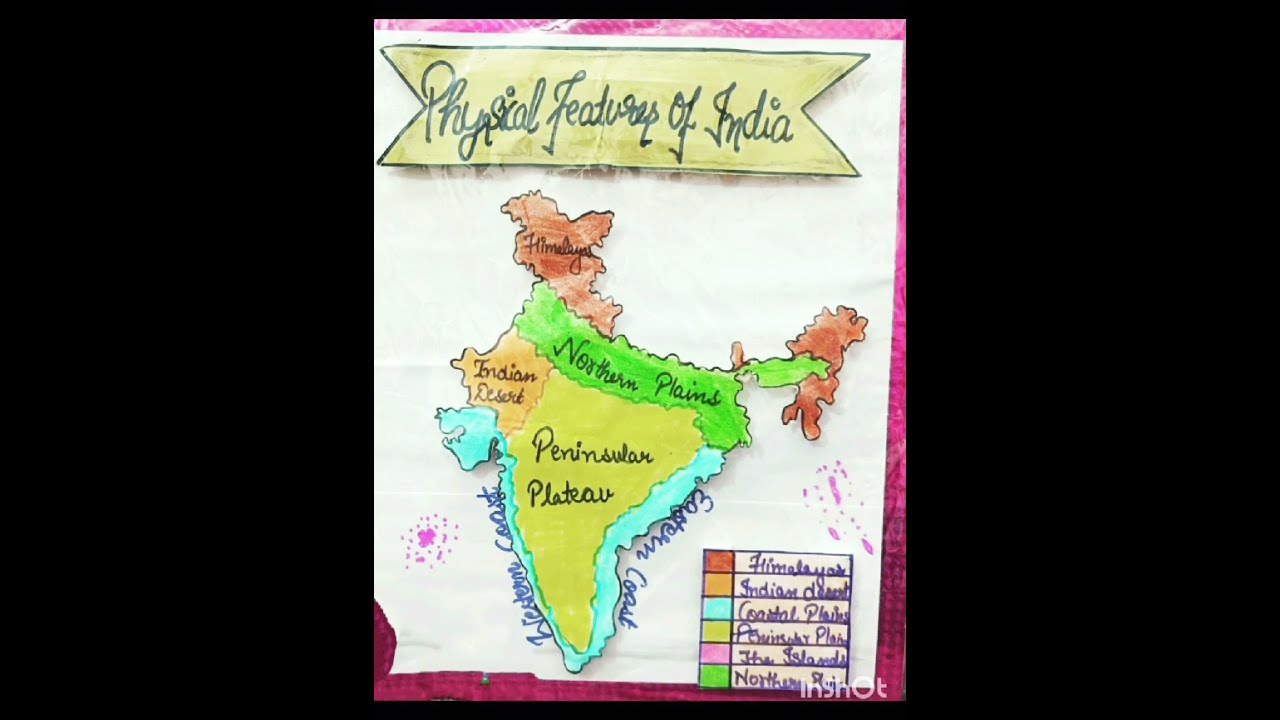 Physical Features Of India
Himalayas
Northern Plains
Indian
Desert
Peninsular
Plateau
Western Coast
Eastern Coast
Himalayas
Indian desert
Coastal Plains
Peninsular Plain
The Islands
Northern
InShOt